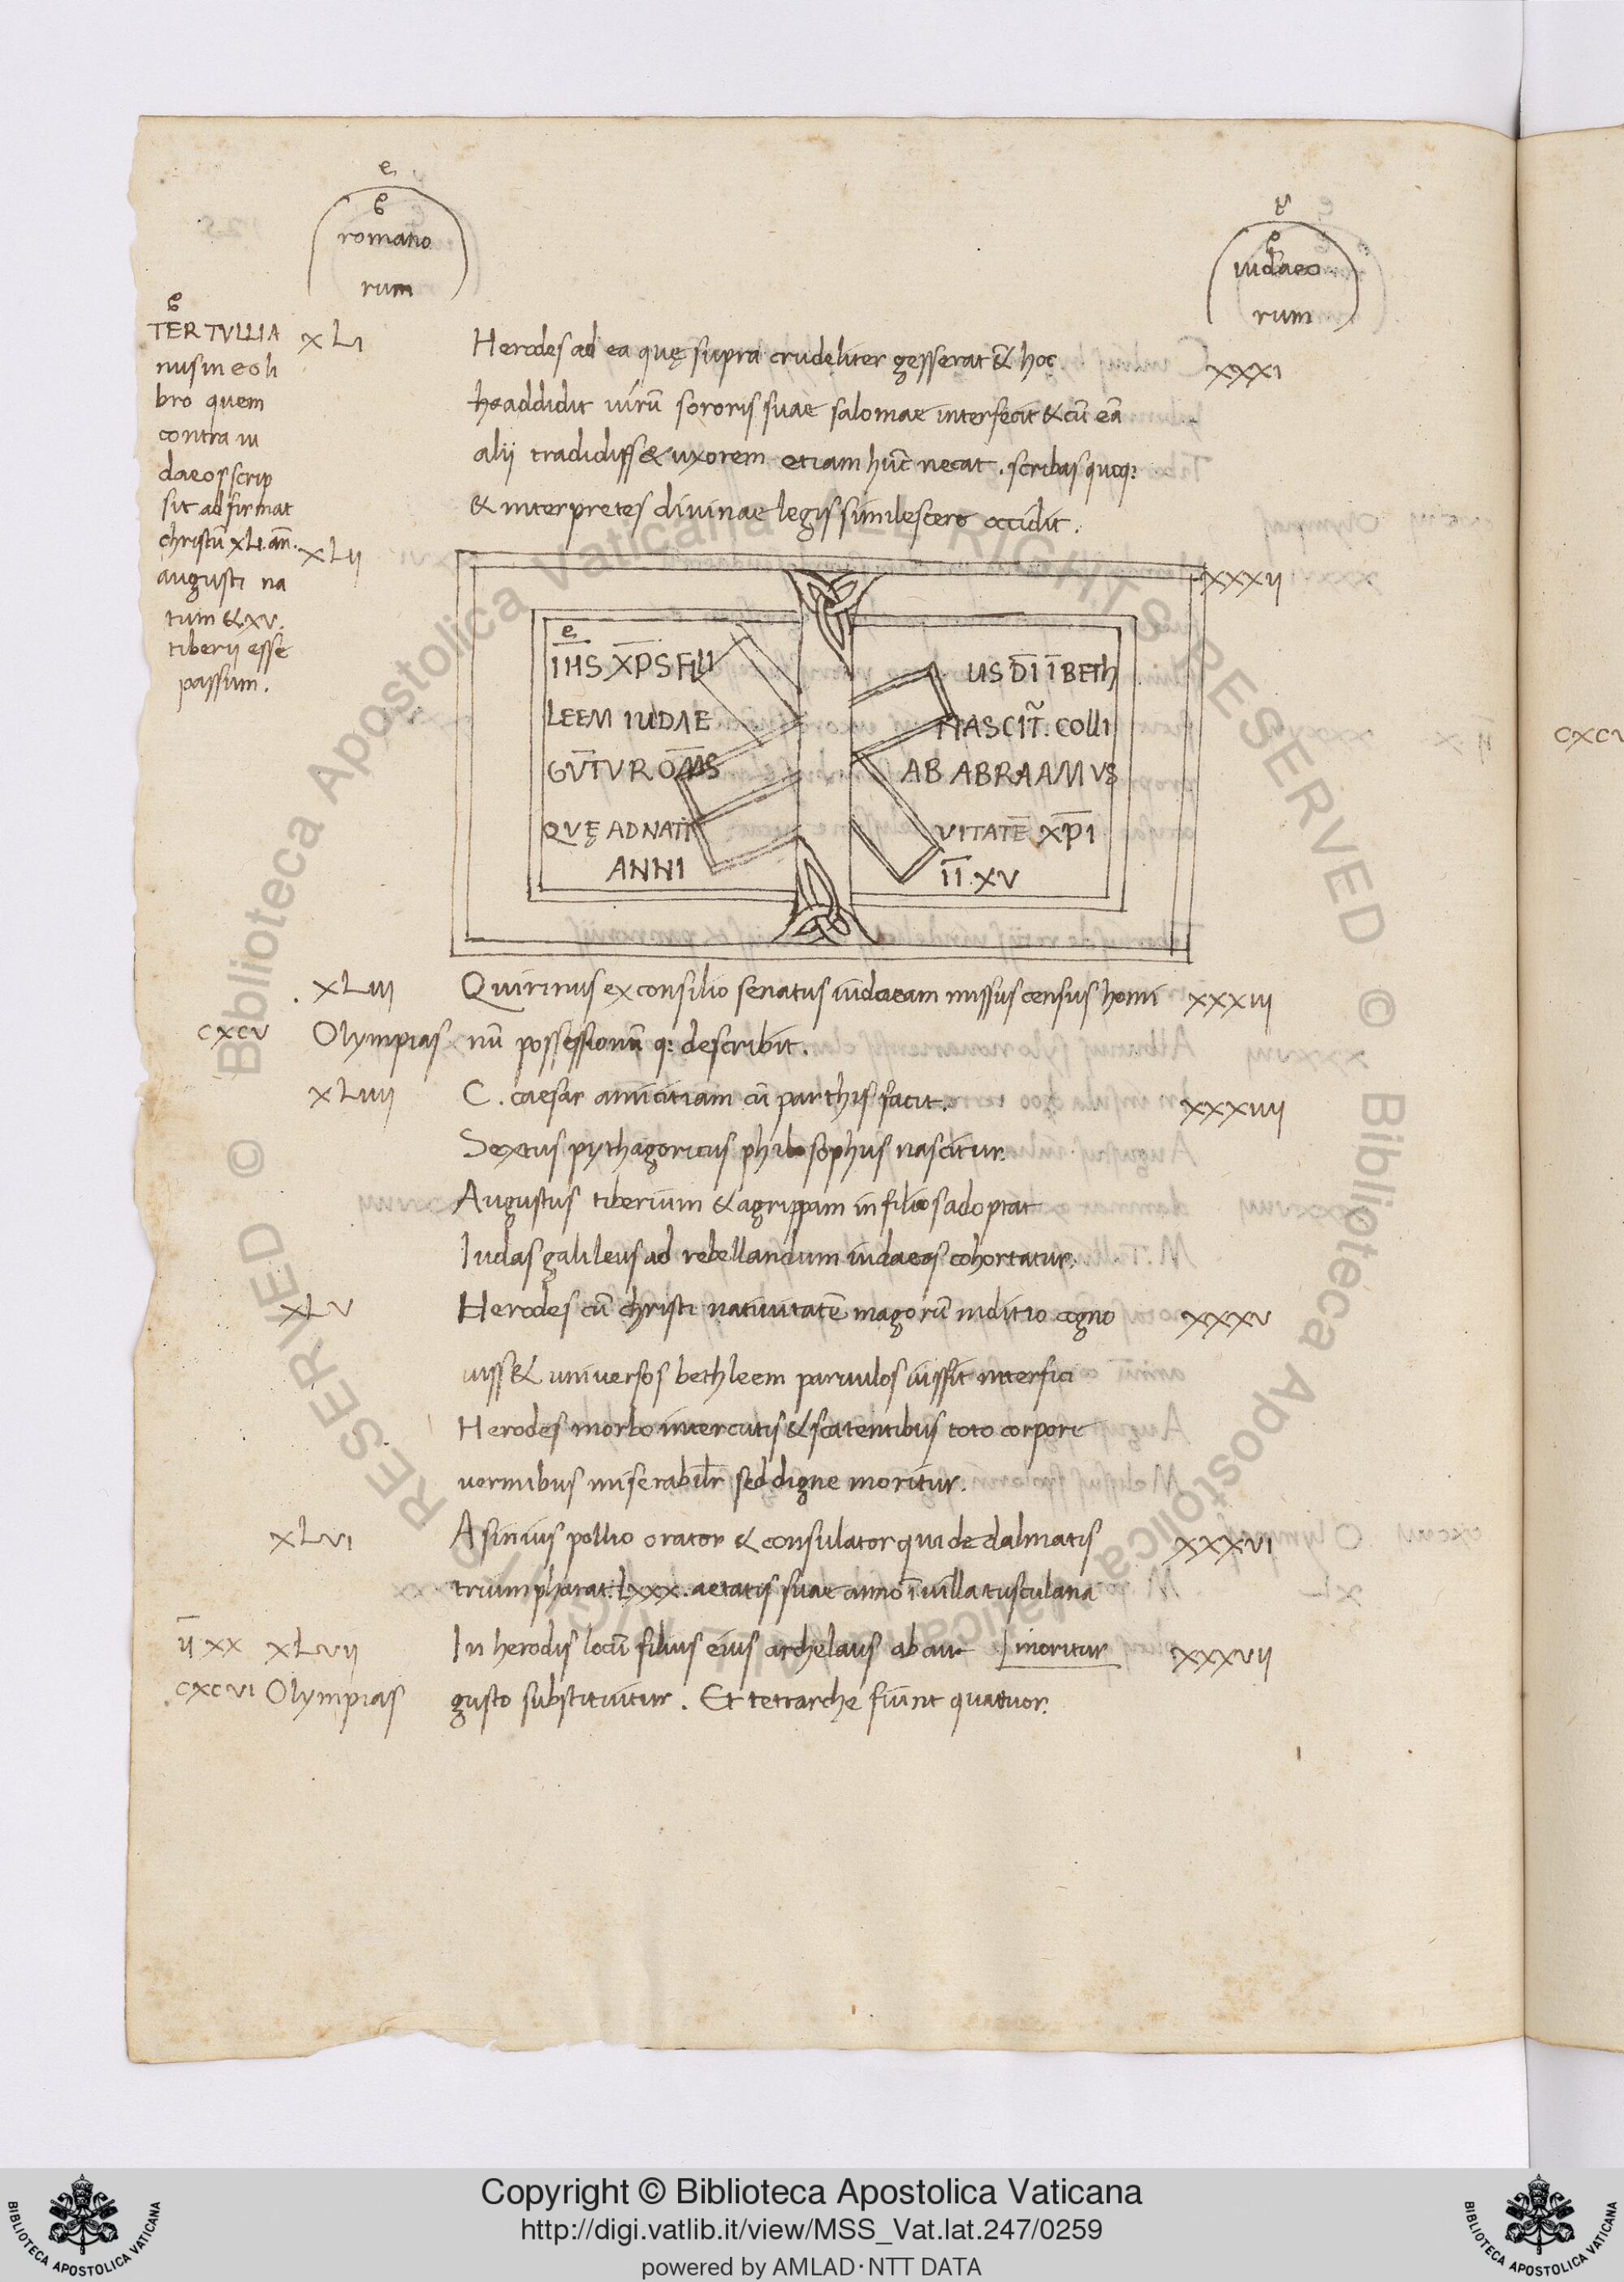 romano
rum
iudaeo
rum
TERTULLIA
nus in eo li
bro quem
contra iu
daeos scrip
sit adfirmat
christū xLi. an̄.
augusti na
tum & xv.
tiberii esse
passum.
xLi Herodes ad ea quę supra crudeliter gesserat & hoc xxxi
addidit virū sororis suae salomae interfecit & cū eā
alii tradidiss& uxorem etiam hūc necat. scribas quoq:
& interpretes divinae legis simili scere occidit.
xLii xxxii
IHS XPS FILI US DĪ Ī BETH
LEEM IUDAE NASCIT̃. COLLI
GŪTUR OM̄S AB ABRAAM US
QVĘ AD NATI VITATĒ XPI
ANNI ĪĪ.XV
xLiii Quirinus ex consilio senatus iudaeam missus census homi xxxiii
cxcv Olympias nū possessionū q: describit.
xLiiii C. caesar amicitiam cū parthis facit. xxxiiii
Sextus pythagoricus philosophus nascitur.
Augustus tiberium & agrippam in filios adoptat
Iudas galileus ad rebellandum iudaeos cohortatur.
xLv Herodes cū christi nativitatē magorū inditio cogno xxxv
viss& universos bethleem parvulos iussit interfici
Herodes morbo intercutis & scatentibus toto corpore
vermibus miserabilr̄ sed digne moritur.
xLvi Asinius pollio orator & consulator qui de dalmatis xxxvi
triumpharat. Lxxx. aetatis suae anno ī villa tusculana
īī xx xLvii In herodis locū filius eius archelaus ab au moritur xxxvii
cxcvi Olympias gusto substituitur. Et tetrarche fiunt quatuor.
cxcv
Copyright © Biblioteca Apostolica Vaticana
http://digi.vatlib.it/view/MSS_Vat.lat.247/0259
powered by AMLAD·NTT DATA
BIBLIOTECA APOSTOLICA VATICANA
BIBLIOTECA APOSTOLICA VATICANA